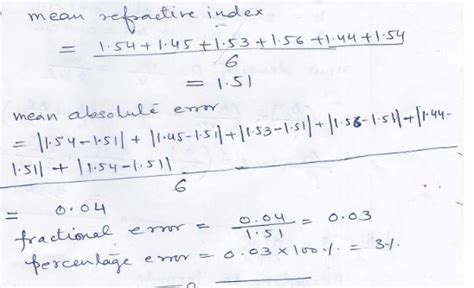 mean refractive index
= 1.54 + 1.45 + 1.53 + 1.56 + 1.44 + 1.54
6
= 1.51
mean absolute error
= |1.54 - 1.51| + |1.45 - 1.51| + |1.53 - 1.51| + |1.56 - 1.51| + |1.44 -
1.51| + |1.54 - 1.51|
6
= 0.04
fractional error = 0.04/1.51 = 0.03
percentage error = 0.03 x 100 % = 3%